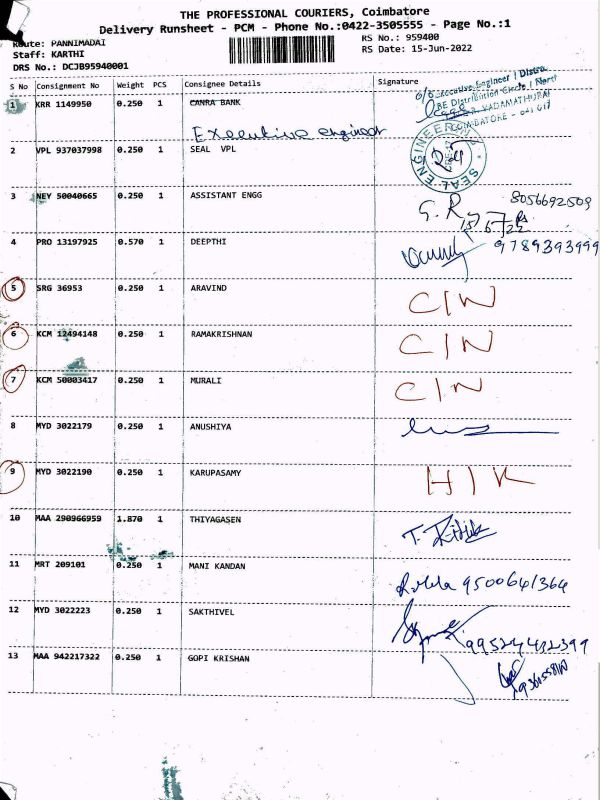 THE PROFESSIONAL COURIERS, Coimbatore
Delivery Runsheet - PCM - Phone No.:0422-3505555 - Page No.:1
Route: PANNIMADAI
RS No.: 959400
Staff: KARTHI
RS Date: 15-Jun-2022
DRS No.: DCJB95940001
S No Consignment No Weight PCS Consignee Details Signature
1 KRR 1149950 0.250 1 CANRA BANK
Executive engineer
2 VPL 937037998 0.250 1 SEAL VPL
3 NEY 50040665 0.250 1 ASSISTANT ENGG G. R 8056692509
4 PRO 13197925 0.570 1 DEEPTHI 9789393999
5 SRG 36953 0.250 1 ARAVIND C/N
6 KCM 12494148 0.250 1 RAMAKRISHNAN C/N
7 KCM 50003417 0.250 1 MURALI C/N
8 MYD 3022179 0.250 1 ANUSHIYA
9 MYD 3022190 0.250 1 KARUPASAMY H/K
10 MAA 290966959 1.870 1 THIYAGASEN
11 MRT 209101 0.250 1 MANI KANDAN 9500641364
12 MYD 3022223 0.250 1 SAKTHIVEL
13 MAA 942217322 0.250 1 GOPI KRISHAN